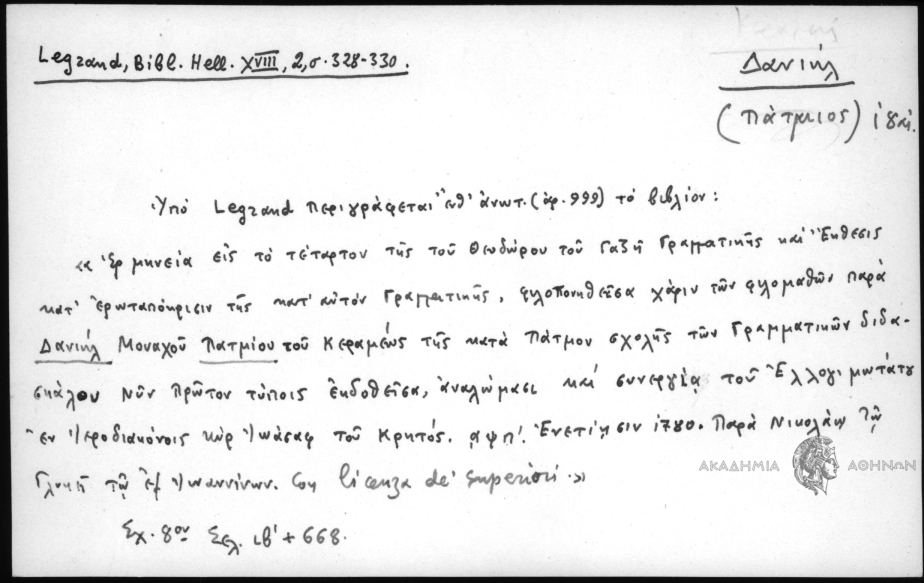 Legrand, Bibl. Hell. XVIII, 2, σ. 328-330.
Δανιήλ
(Πάτμιος)
Ὑπὸ Legrand περιγράφεται ἐνθ' ἀνωτ. (ἀρ. 999) τὸ βιβλίον:
«Ἑρμηνεία εἰς τὸ τέταρτον τῆς τοῦ Θεοδώρου τοῦ Γαζῆ Γραμματικῆς καὶ Ἔκθεσις
κατ' ἐρωταπόκρισιν τῆς κατ' αὐτὸν Γραμματικῆς, φιλοπονηθεῖσα χάριν τῶν φιλομαθῶν παρὰ
Δανιὴλ Μοναχοῦ Πατμίου τοῦ Κεραμέως τῆς κατὰ Πάτμον σχολῆς τῶν Γραμματικῶν διδα-
σκάλου νῦν πρῶτον τύποις ἐκδοθεῖσα, ἀναλώμασι καὶ συνεργίᾳ τοῦ Ἐλλογιμωτάτου
ἐν Ἱεροδιακόνοις κὺρ Ἰωάσαφ τοῦ Κρητός. αψπ'. Ἐνετίῃσιν 1780. Παρὰ Νικολάῳ τῷ
Γλυκεῖ τῷ ἐξ Ἰωαννίνων. Con licenza de' superiori»
Σχ. 8ον Σελ. ιβ' + 668.
ΑΚΑΔΗΜΙΑ ΑΘΗΝΩΝ